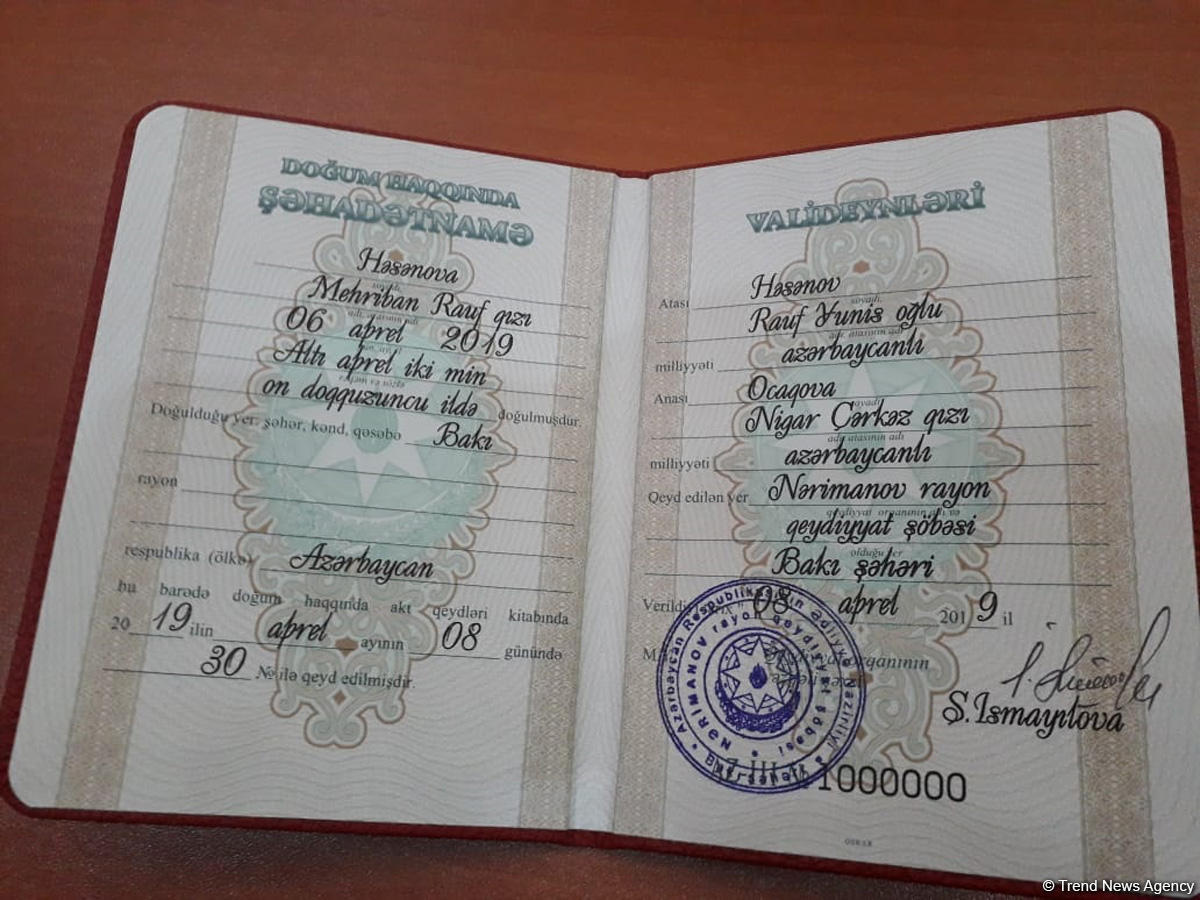 DOĞUM HAQQINDA
ŞƏHADƏTNAMƏ
Həsənova
soyadı,
Mehriban Rauf qızı
adı, atasının adı
06 aprel 2019
Altı aprel iki min
rəqəm və sözlə
on doqquzuncu ildə doğulmuşdur.
Doğulduğu yer: şəhər, kənd, qəsəbə Bakı
rayon
respublika (ölkə) Azərbaycan
bu barədə doğum haqqında akt qeydləri kitabında
20 19 ilin aprel ayının 08 günündə
30 № ilə qeyd edilmişdir.
VALİDEYNLƏRİ
Atası Həsənov
soyadı,
Rauf Yunis oğlu
adı, atasının adı
milliyyəti azərbaycanlı
Anası Ocaqova
soyadı,
Nigar Çərkəz qızı
adı, atasının adı
milliyyəti azərbaycanlı
Qeyd edilən yer Nərimanov rayon
qeydiyyat orqanının adı və
qeydiyyat şöbəsi
olduğu yer
Bakı şəhəri
08 aprel 2019 il
orqanının
Azərbaycan Respublikasının Ədliyyə Nazirliyi
Bakı şəhəri
NƏRİMANOV rayon qeydiyyat şöbəsi
Ş.Ismayılova
1000000
© Trend News Agency